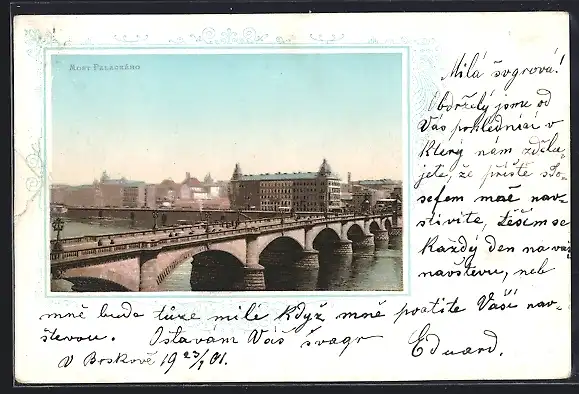 Most Palackého
Milá švgrová!
Obdrželý jsme od
Vás pohlednici v
Který nám zděla-
jete, že příště s Jo-
sefem mně nav-
štívíte, těším se
Každý den na va
navštevu, neb
mně bude túze milé když mně poctíte Vaší nav-
števou. Ostávám Váš švagr Eduard.
V Boskově 19 23/7 01.